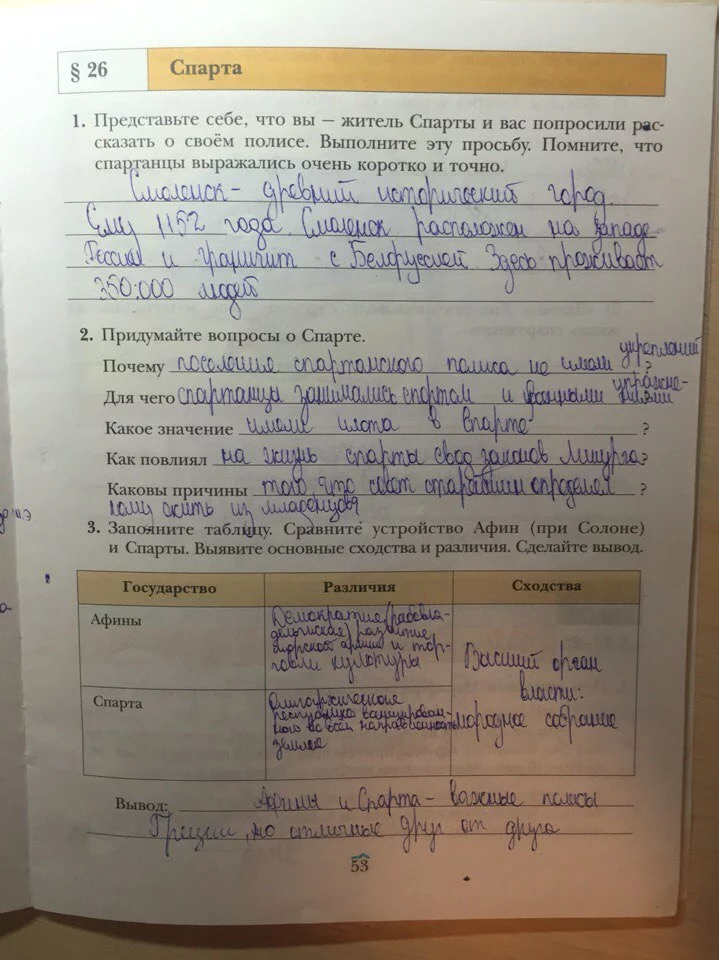 § 26 Спарта
1. Представьте себе, что вы – житель Спарты и вас попросили рас-
сказать о своём полисе. Выполните эту просьбу. Помните, что
спартанцы выражались очень коротко и точно.
Смоленск - древний исторический город.
Ему 1152 года. Смоленск расположен на западе
России и граничит с Белоруссией. Здесь проживает
350.000 людей
2. Придумайте вопросы о Спарте.
укреплений
Почему поселения спартанского полиса не имели ?
упражне-
Для чего спартанцы занимались спортом и военными ниями
Какое значение имели илота в Спарте ?
Как повлиял на жизнь спарты свод законов Ликурга ?
Каковы причины того что совет старейшин определял ?
кому жить из младенцов
3. Заполните таблицу. Сравните устройство Афин (при Солоне)
и Спарты. Выявите основные сходства и различия. Сделайте вывод.
Государство Различия Сходства
Афины
Демократия (рабовла-
дельческая) развитие
морской армии и тор-
говли культуры
Спарта
Олигархическая
республика
во всём направленность
Высший орган
власти:
народное собрание
Вывод: Афины и Спарта - важные полисы
Греции, но отличные друг от друга
53